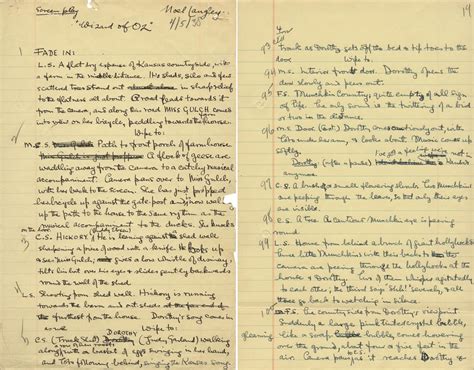 Screen play
Noel Langley
"Wizard of OZ"
4/5/38
1
FADE IN:
L.S. A flat dry expanse of Kansas countryside, with
a farm in the middle distance. Its sheds, silo and few
scattered trees stand out in sharp relief
to the flatness all about. A road leads towards it
from the camera, and along his road MISS GULCH comes
into view on her bicycle, peddling towards the house.
Wipe to:
M.S. Path to front porch of farmhouse
A flock of geese are
waddling away from the camera to a catchy musical
accompaniment. Camera pans over to Miss Gulch,
with her back to the screen. She has just propped
her bicycle up against the gate-post and now walks
up the path to the house to the same rhythm as the
musical accompaniment to the ducks. She knocks
C.S. HICKORY. He is leaning against shed wall,
sharpening a piece of wood with a knife. He looks up
sees Miss Gulch; gives a low whistle of dismay,
tilts his hat over his eyes & slides gently backwards
round the wall of the shed
L.S. Shooting from shed wall. Hickory is running
towards the barns and out sheds at the
furthest from the house. Dorothy's song comes in
Wipe to:
DOROTHY
C.S. (Truck Shot) (Judy Garland) walking
along with a basket of eggs swinging in her hand,
and Toto following behind, singing the Kansas Song.
19
93
Frank as Dorothy gets off the bed & tip toes to the
door
Wipe to:
94
M.S. Interior front door. Dorothy opens the
door slowly and peers out
95
F.S. Munchkin Country; quite empty of all sign
of life. The only sound is the twittering of a bird
or two in the distance.
96
M.S. Door (Ext) Dorothy comes cautiously out, with
Toto under her arm, & looks about. Music comes up
softly.
Dorothy (after a pause)
anymore.
97
C.S. A bush, & a small glowering
are peeping through the leaves, so that only their eyes
are visible.
98
C.S. A tree. A cautious Munchkin eye is peering
round
99
L.S. House from behind a branch of giant hollyhocks
three little Munchkins with their backs to the
camera are peeping through the hollyhocks at the
house & Dorothy. Two of them whisper agitatedly
to each other; the third says "Shh" severely, & all
three go back to watching in silence.
F.S. the country side from Dorothy's viewpoint
Suddenly a large pink tinted crystal bubble,
like a soap bubble comes hovering
over the ground, but four or five feet in the
air. Camera pans as it reaches Dorothy &